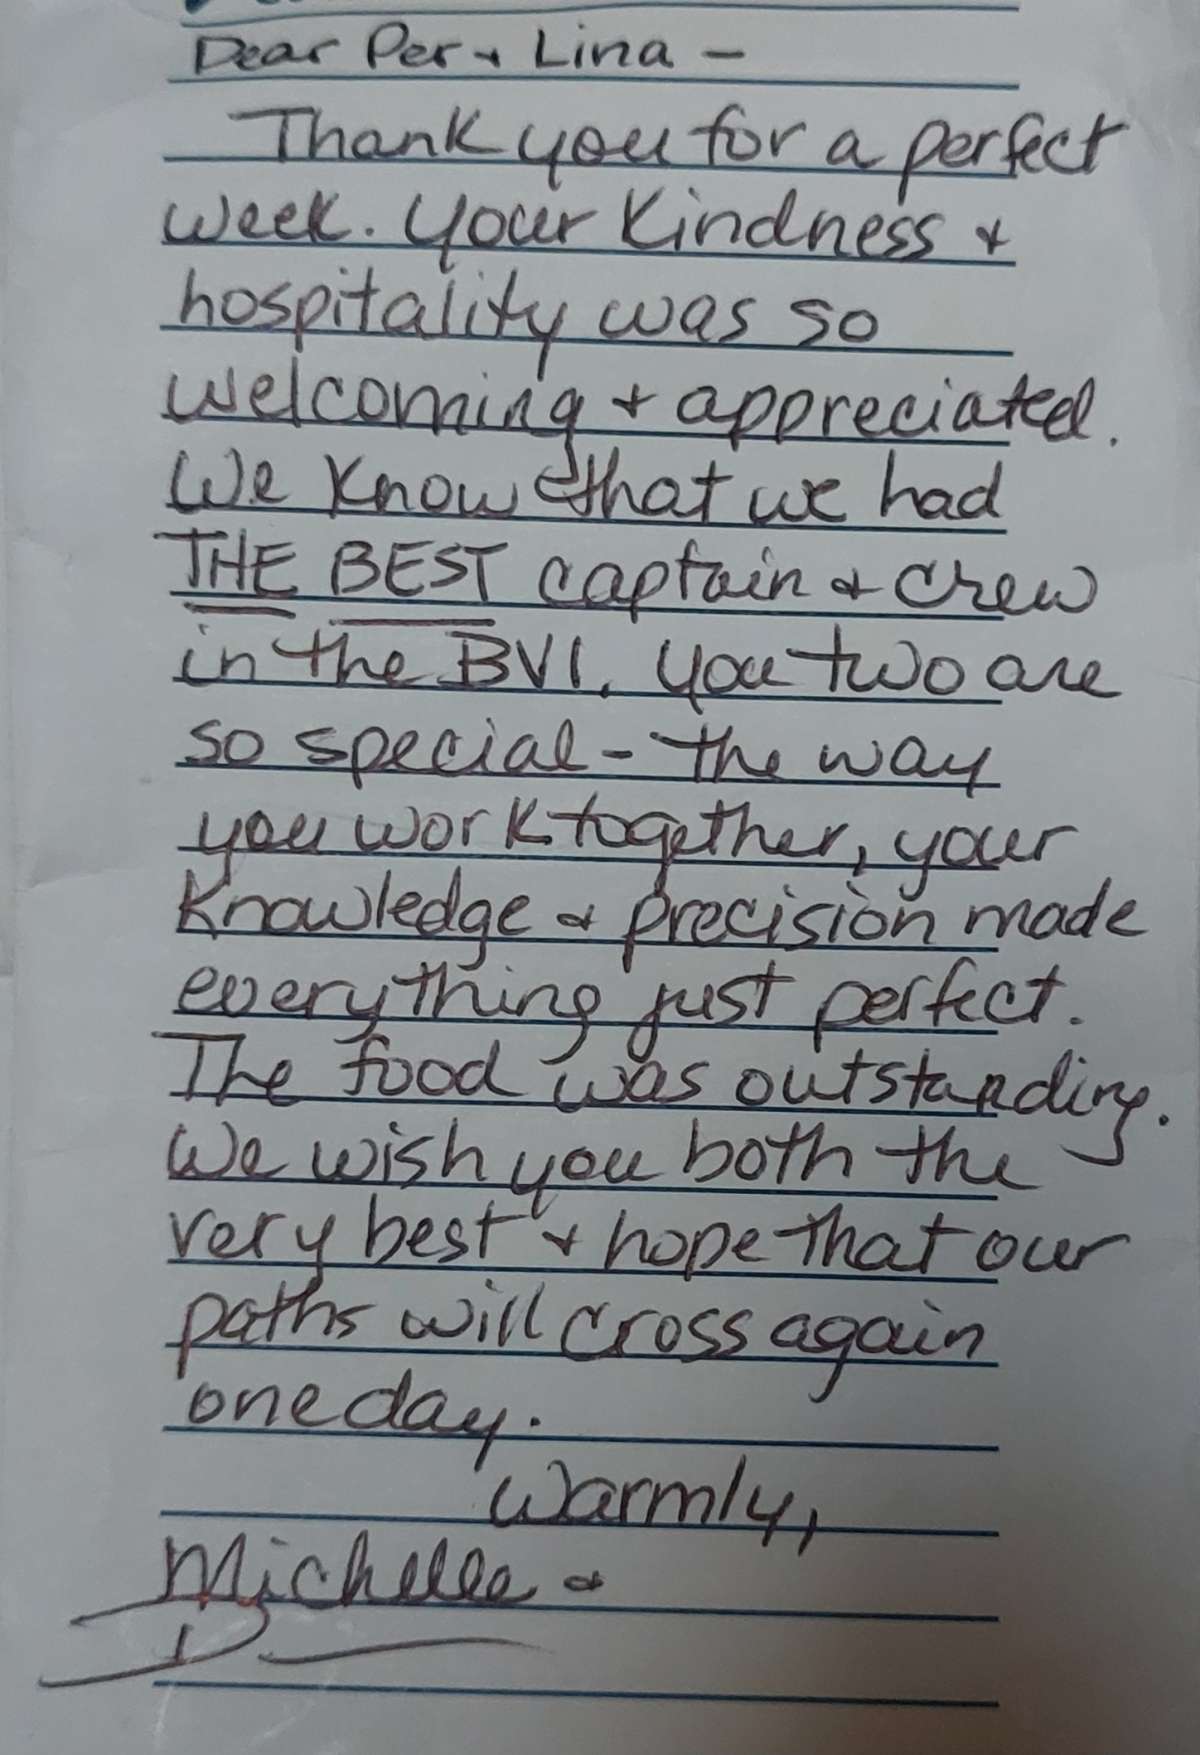 Dear Per & Lina -
Thank you for a perfect
week. Your kindness &
hospitality was so
welcoming & appreciated.
We know that we had
THE BEST captain & crew
in the BVI. You two are
so special - the way
you work together, your
knowledge & precision made
everything just perfect.
The food was outstanding.
We wish you both the
very best & hope that our
paths will cross again
one day.
Warmly,
Michelle &